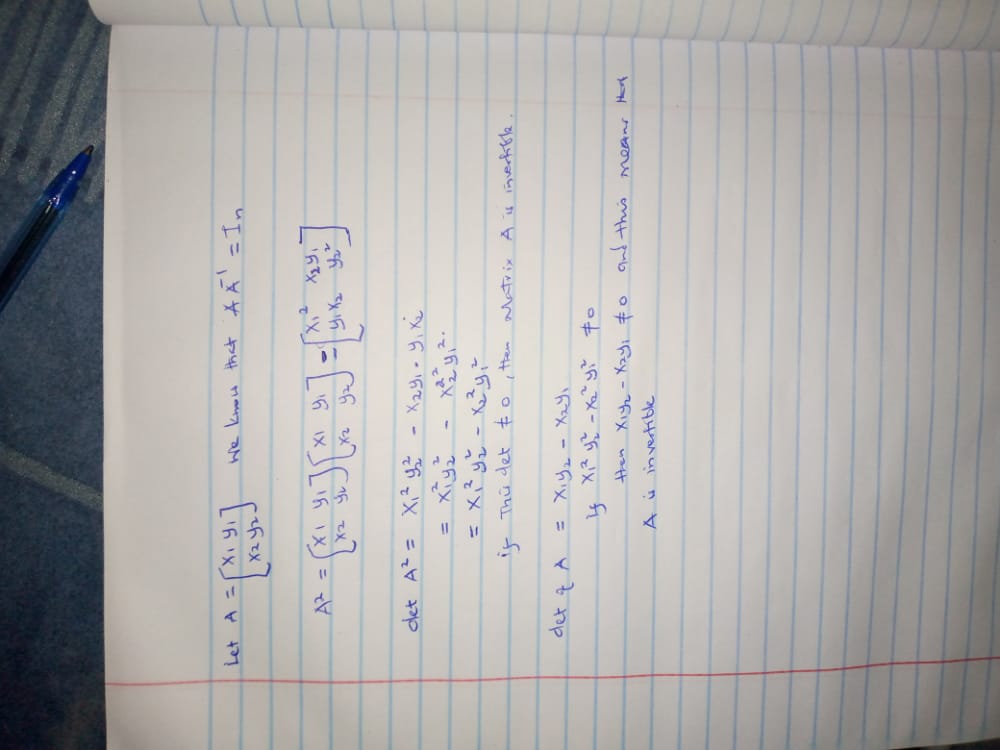 Let A = [x1 y1
x2 y2] We know that A A^-1 = In
A² = [x1 y1 [x1 y1 = [x1² x2y1
x2 y2] x2 y2] y1x2 y2²]
det A² = x1² y2² - x2y1 · y1x2
= x1²y2² - x2²y1².
= x1² y2² - x2² y1²
if This det ≠ 0, then Matrix A is invertible.
det of A = x1y2 - x2y1
If x1² y2² - x2² y1² ≠ 0
then x1y2 - x2y1 ≠ 0 and this means that
A is invertible